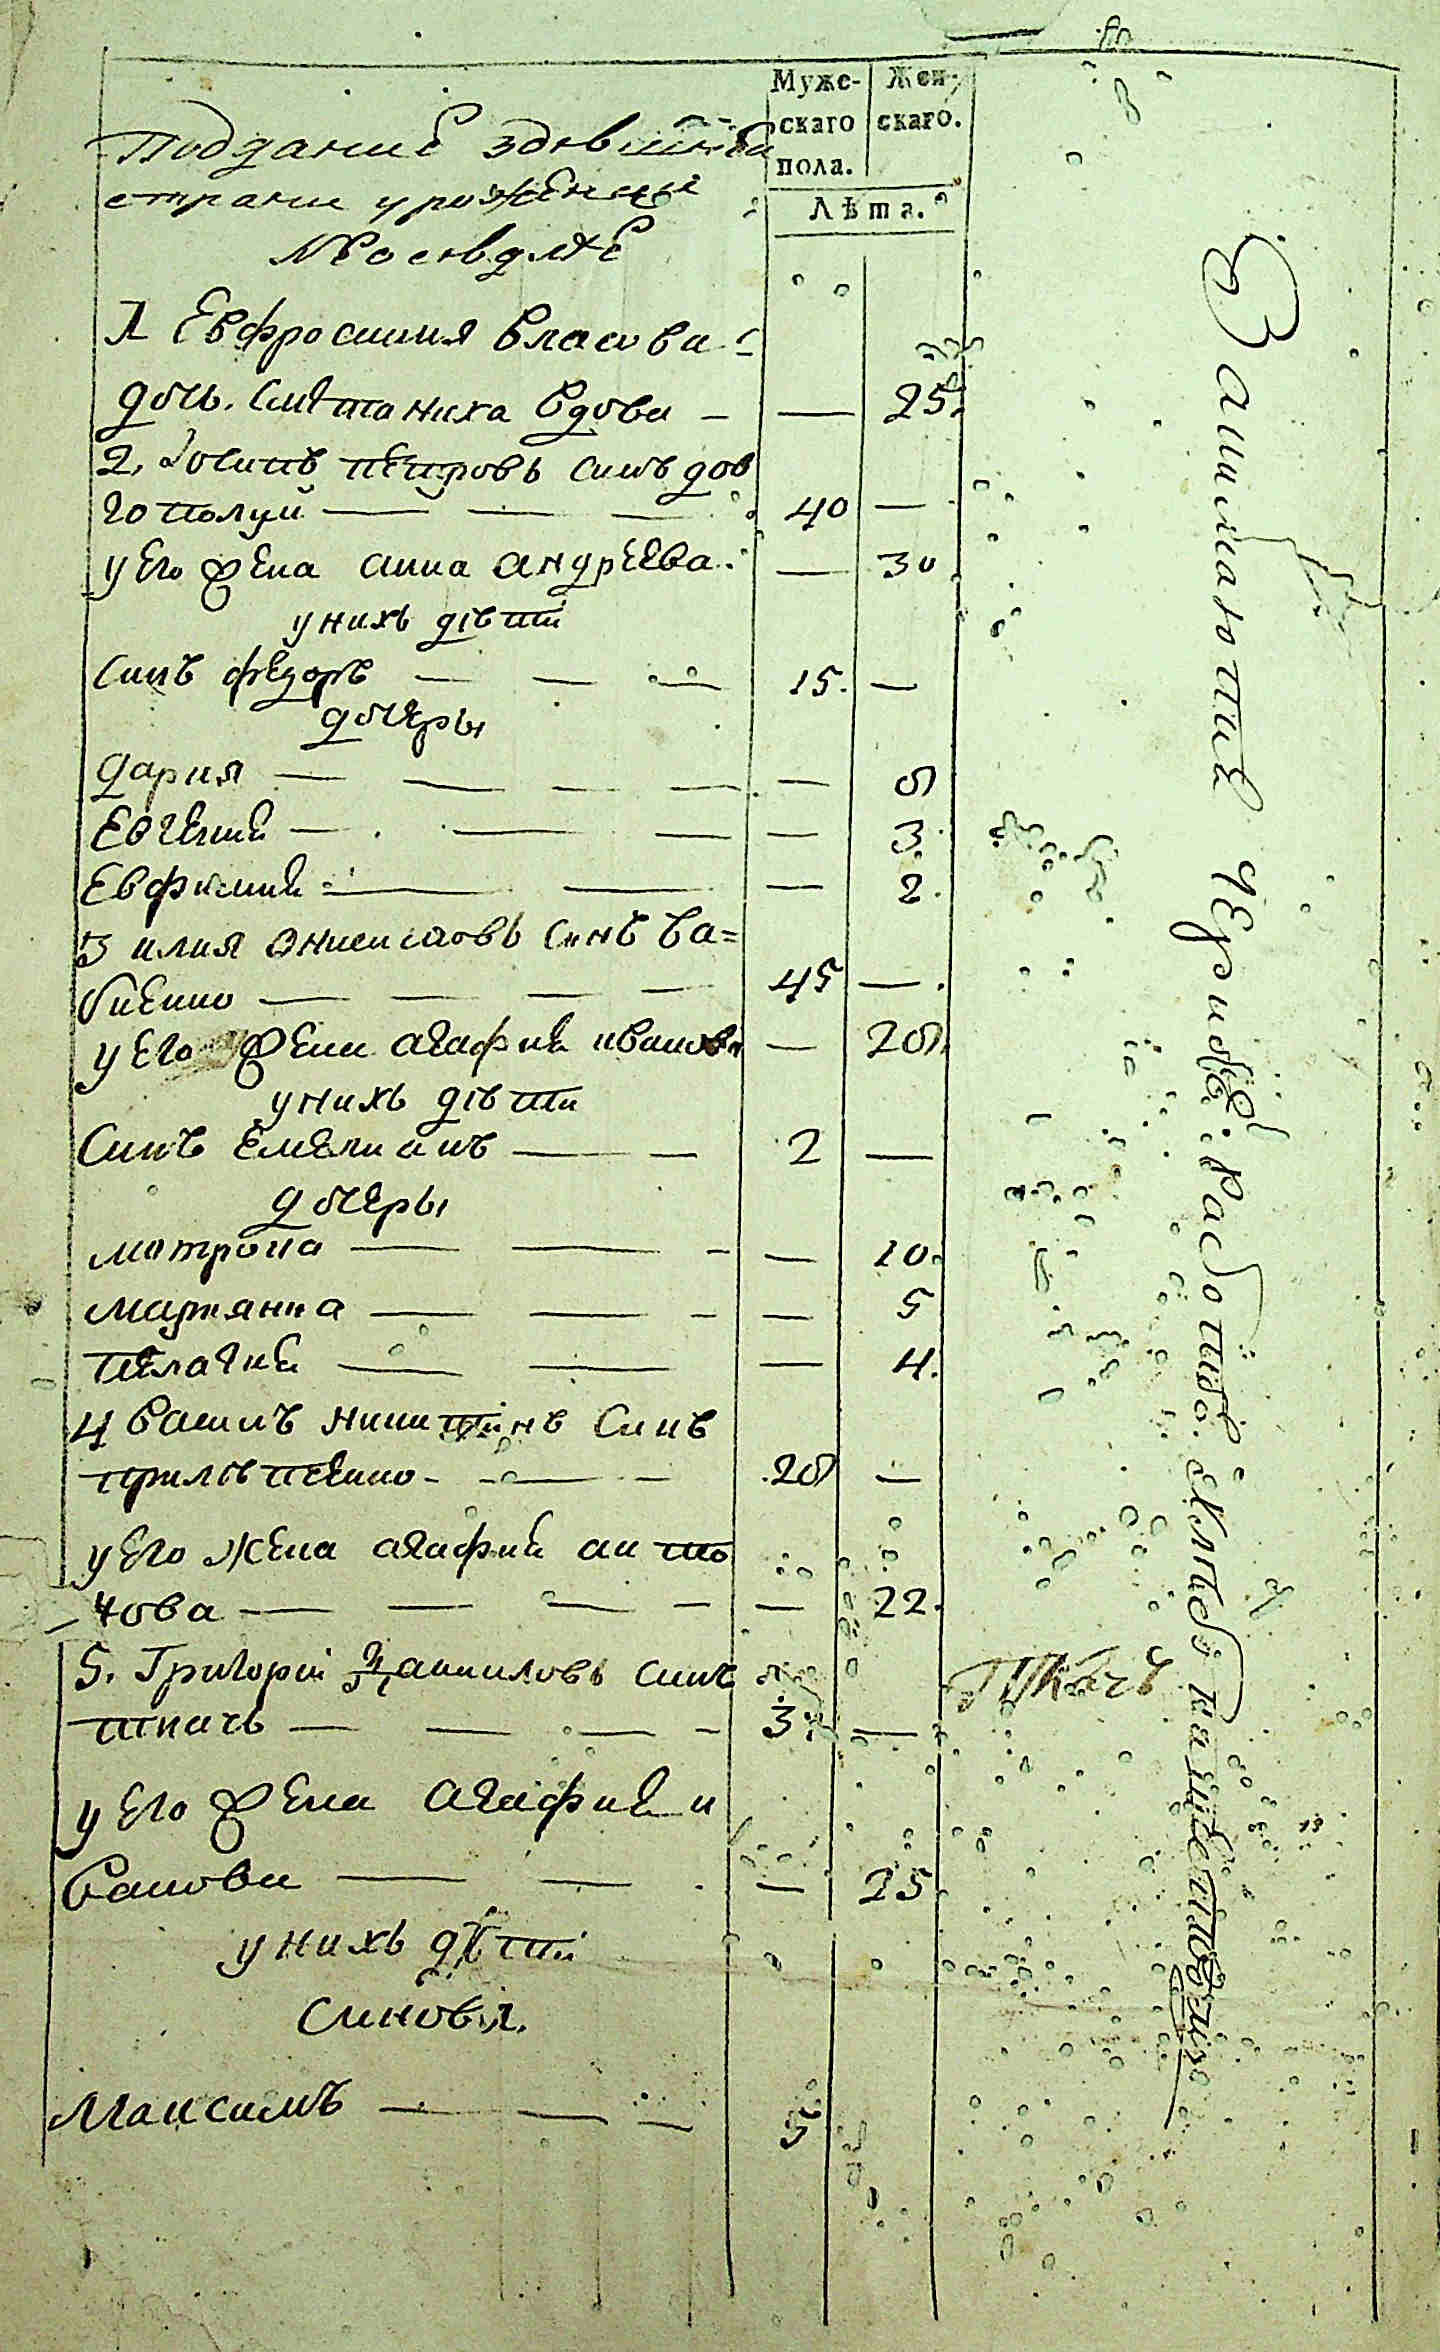 Муже-
скаго
пола.
Жен-
скаго.
Лѣта.
Подданиє здѣшнѣи
страни уроженцы
1 Евфросиния Власова
дочь. Сметаниха вдова — — 25.
2. Іосипъ петровъ синъ дов
гополуй — 40 —
у его жена анна андреева. — 30
у нихъ дѣти
Синъ федоръ — 15. —
дочеры
дария — — 6
Евгения — — 3.
Евфимия — — 2.
3 илия онисимовъ синъ ба=
биенко — 45 —
у его жена агафия иванова — 26
у нихъ дѣти
Синъ Емелианъ — 2 —
дочеры
мотрона — — 10.
марянна — — 5
пелагия — — 4.
4 Василъ никитинъ Синъ
прилѣпенко — 26 —
у его жена агафия анто
нова — — 22.
5. Григорій даниловъ синъ
ткачъ — 3 —
у его жена агафия и
ванова — — 25
у нихъ дѣти
Синовѣя.
Максимъ — 5
Ткачъ
Занимаютце
работою